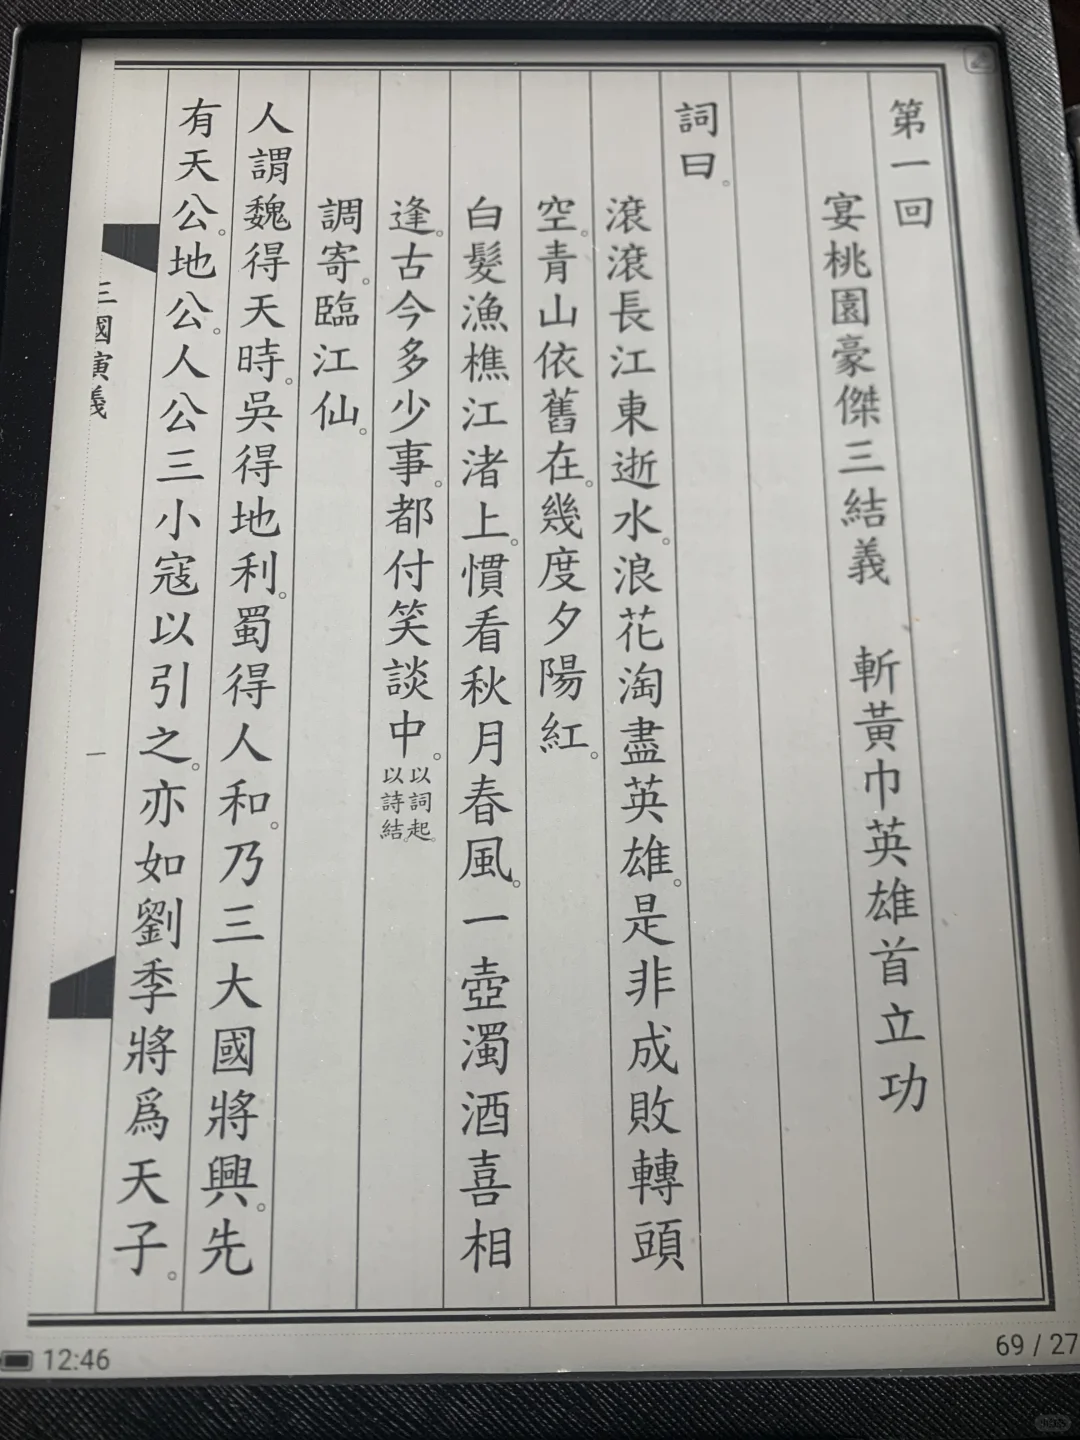 第一回
宴桃園豪傑三結義　斬黃巾英雄首立功
詞曰。
滾滾長江東逝水。浪花淘盡英雄。是非成敗轉頭
空。青山依舊在。幾度夕陽紅。
白髮漁樵江渚上。慣看秋月春風。一壺濁酒喜相
逢。古今多少事。都付笑談中。
以詞起。
以詩結。
調寄。臨江仙。
人謂魏得天時。吳得地利。蜀得人和。乃三大國將興。先
有天公。地公。人公三小寇以引之。亦如劉季將爲天子。
三國演義
一
12:46
69 / 27